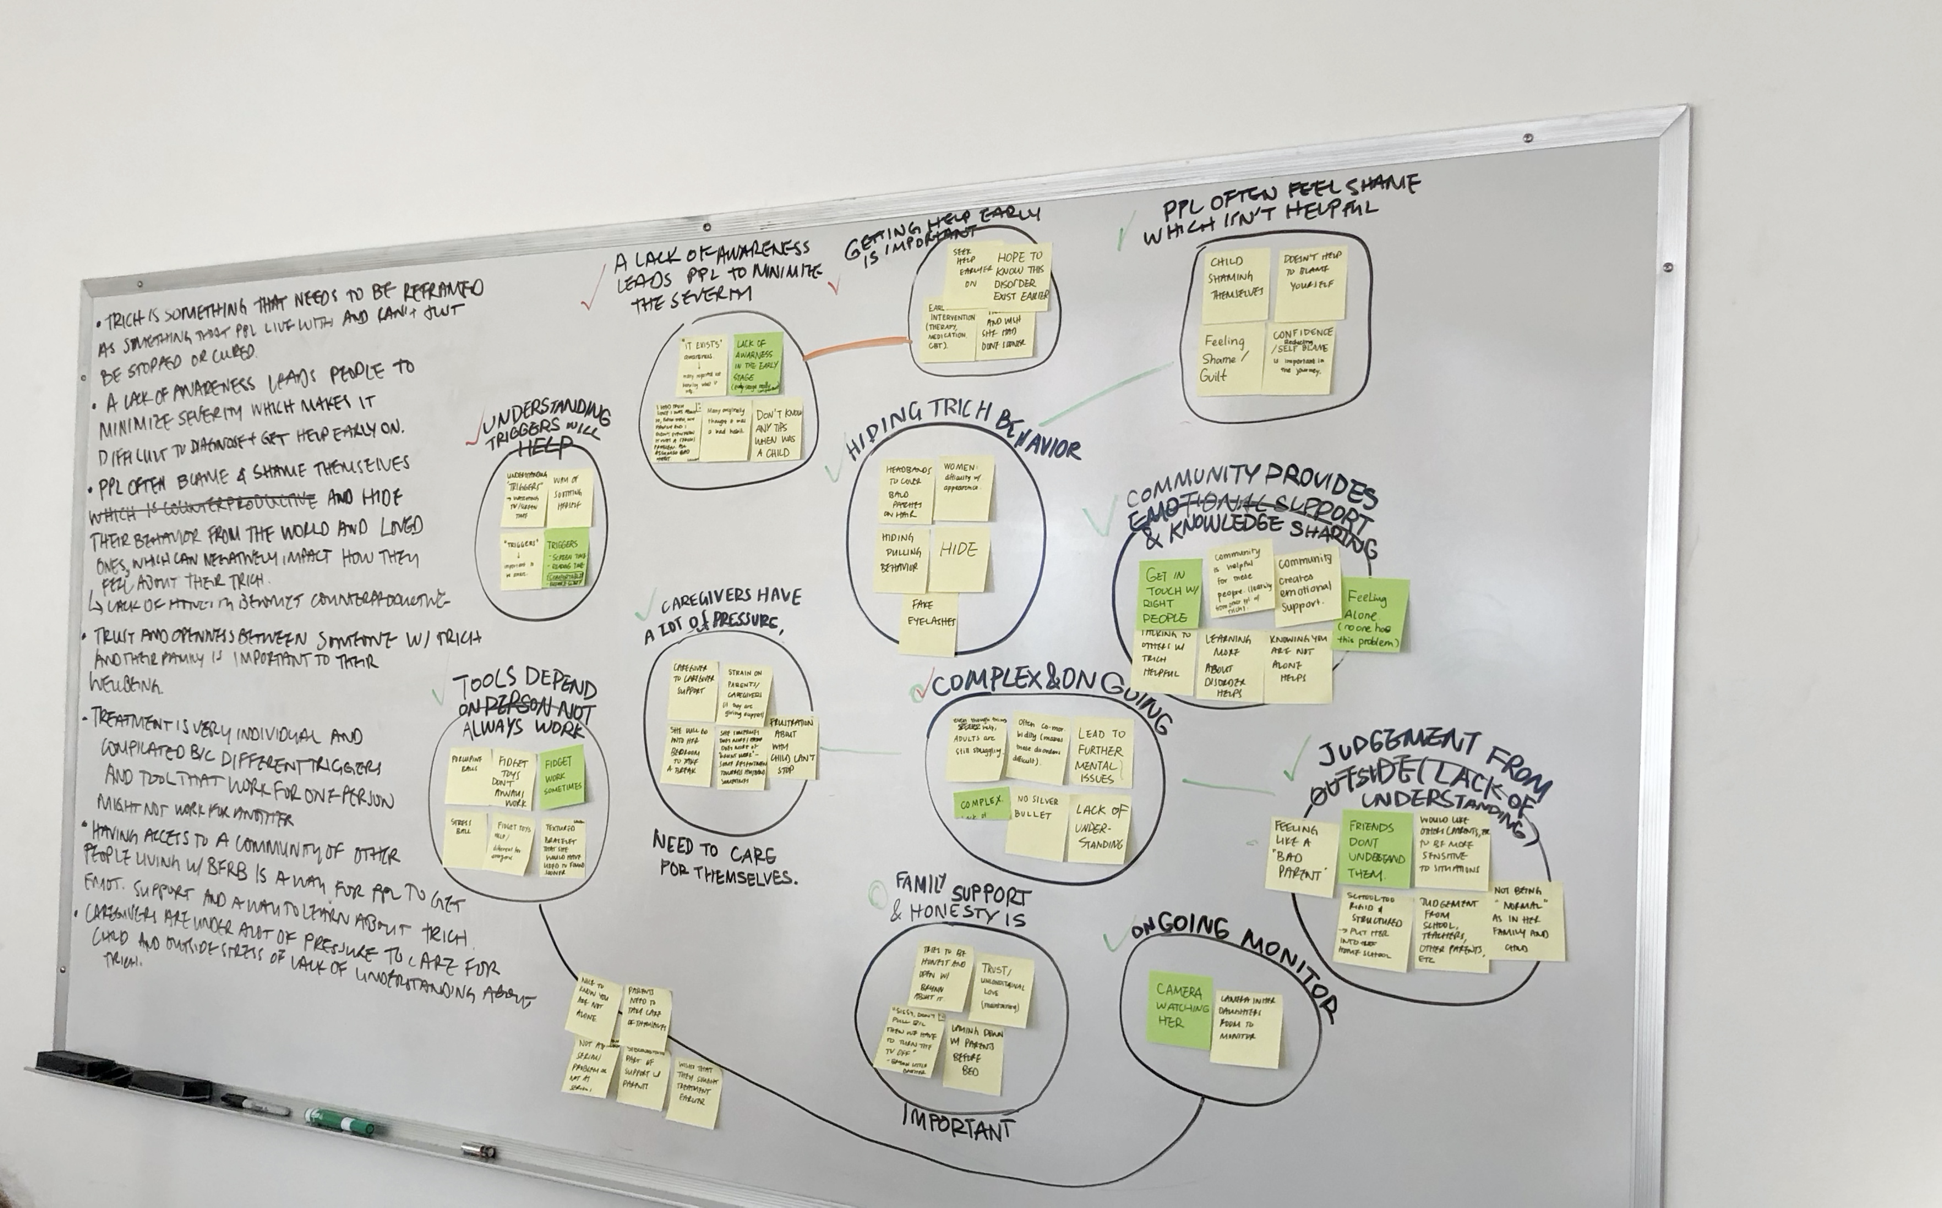 • TRICH IS SOMETHING THAT NEEDS TO BE REFRAMED
AS SOMETHING THAT PPL LIVE WITH AND CAN'T JUST
BE STOPPED OR CURED.
• A LACK OF AWARENESS LEADS PEOPLE TO
MINIMIZE SEVERITY WHICH MAKES IT
DIFFICULT TO DIAGNOSE + GET HELP EARLY ON.
• PPL OFTEN BLAME & SHAME THEMSELVES
WHICH IS COUNTERPRODUCTIVE AND HIDE
THEIR BEHAVIOR FROM THE WORLD AND LOVED
ONES, WHICH CAN NEGATIVELY IMPACT HOW THEY
FEEL ABOUT THEIR TRICH.
↳ LACK OF COUNTERPRODUCTIVE
• TRUST AND OPENNESS BETWEEN SOMEONE W/ TRICH
AND THEIR FAMILY IS IMPORTANT TO THEIR
WELLBEING.
• TREATMENT IS VERY INDIVIDUAL AND
COMPLICATED B/C DIFFERENT TRIGGERS
AND TOOL THAT WORK FOR ONE PERSON
MIGHT NOT WORK FOR ANOTHER
• HAVING ACCESS TO A COMMUNITY OF OTHER
PEOPLE LIVING W/ BFRB IS A WAY FOR PPL TO GET
EMOT. SUPPORT AND A WAY TO LEARN ABOUT TRICH.
• CAREGIVERS ARE UNDER A LOT OF PRESSURE TO CARE FOR
CHILD AND OUTSIDE STRESS OF LACK OF UNDERSTANDING ABOUT
TRICH.
UNDERSTANDING
TRIGGERS WILL
HELP
UNDERSTANDING
"TRIGGERS"
WAY OF
SOOTHING
"TRIGGERS"
TRIGGERS
- SCREEN TIME
- READING TIME
A LACK OF AWARENESS
LEADS PPL TO MINIMIZE
THE SEVERITY
"IT EXISTS"
awareness.
LACK OF
AWARNESS
IN THE EARLY
STAGE
Many originally
thought it was
a bad habit.
DON'T KNOW
ANY TIPS
WHEN WAS
A CHILD
GETTING HELP EARLY
IS IMPORTANT
SEEK
HELP
EARLIER
ON
HOPE TO
KNOW THIS
DISORDER
EXIST EARLIER
INTERVENTION
(THERAPY,
MEDICATION,
CBT).
AND WISH
SHE HAD
DONE SOONER
PPL OFTEN FEEL SHAME
WHICH ISN'T HELPFUL
CHILD
SHAMING
THEMSELVES
DOESN'T HELP
TO BLAME
YOURSELF
Feeling
Shame/
Guilt
CONFIDENCE
/SELF BLAME
is important in
the journey.
HIDING TRICH BEHAVIOR
HEADBANDS
TO COVER
BALD
PATCHES
ON HAIR
WOMEN:
difficulty w/
appearance.
HIDING
PULLING
BEHAVIOR
HIDE
FAKE
EYELASHES
COMMUNITY PROVIDES
EMOTIONAL SUPPORT
& KNOWLEDGE SHARING
GET IN
TOUCH W/
RIGHT
PEOPLE
community
is helpful
for these
people.
Community
creates
emotional
support.
Feeling
Alone
(no one has
this problem)
TALKING TO
OTHERS W/
TRICH
HELPFUL
LEARNING
MORE
ABOUT
DISORDER
HELPS
KNOWING YOU
ARE NOT
ALONE
HELPS
CAREGIVERS HAVE
A LOT OF PRESSURE,
CAREGIVER
TO CAREGIVER
SUPPORT
STRAIN ON
PARENTS/
CAREGIVERS
(if they are
giving support)
SHE WILL GO
INTO HER
BEDROOM
TO TAKE
A BREAK
FRUSTRATION
ABOUT
WHY
CHILD CAN'T
STOP
NEED TO CARE
FOR THEMSELVES.
TOOLS DEPEND
ON PERSON NOT
ALWAYS WORK
BALL
FIDGET
TOYS
DON'T
ALWAYS
WORK
FIDGET
WORK
SOMETIMES
STRESS
BALL
FIDGET TOYS
HELP/
different for
everyone
TEXTURED
BRACELET
THAT SHE
WOULD HAVE
LIKED TO FOUND
SOONER
COMPLEX & ON GOING
ADULTS are
still struggling.
Often co-mor
bidity
LEAD TO
FURTHER
MENTAL
ISSUES
COMPLEX.
NO SILVER
BULLET
LACK OF
UNDER-
STANDING
JUDGEMENT FROM
OUTSIDE (LACK OF
UNDERSTANDING)
FEELING
LIKE A
"BAD
PARENT"
FRIENDS
DONT
UNDERSTAND
THEM.
WOULD LIKE
OTHERS (PARENTS, etc
TO BE MORE
SENSITIVE
TO SITUATIONS
SCHOOL TOO
RIGID &
STRUCTURED
→ PUT HER
INTO
HOME SCHOOL
JUDGEMENT
FROM
SCHOOL,
TEACHERS,
OTHER PARENTS,
ETC
NOT BEING
"NORMAL"
AS IN HER
FAMILY AND
CHILD
FAMILY SUPPORT
& HONESTY IS
TRIES TO BE
HONEST AND
OPEN W/
ABOUT IT
TRUST/
UNCONDITIONAL
LOVE
PULL
THEN WE HAVE
TO TURN THE
TV OFF"
LAYING DOWN
W/ PARENTS
BEFORE
BED
IMPORTANT
ONGOING MONITOR
CAMERA
WATCHING
HER
CAMERA IN HER
DAUGHTERS
ROOM TO
MONITOR
NICE TO
KNOW YOU
ARE NOT
ALONE
PARENTS
NEED TO
TAKE CARE
OF THEMSELVES
NOT A
SERIOUS
PROBLEM OR
NOT AS
SERIOUS
PART OF
SUPPORT W/
PARENTS
WISH THAT
THEY SOUGHT
TREATMENT
EARLIER